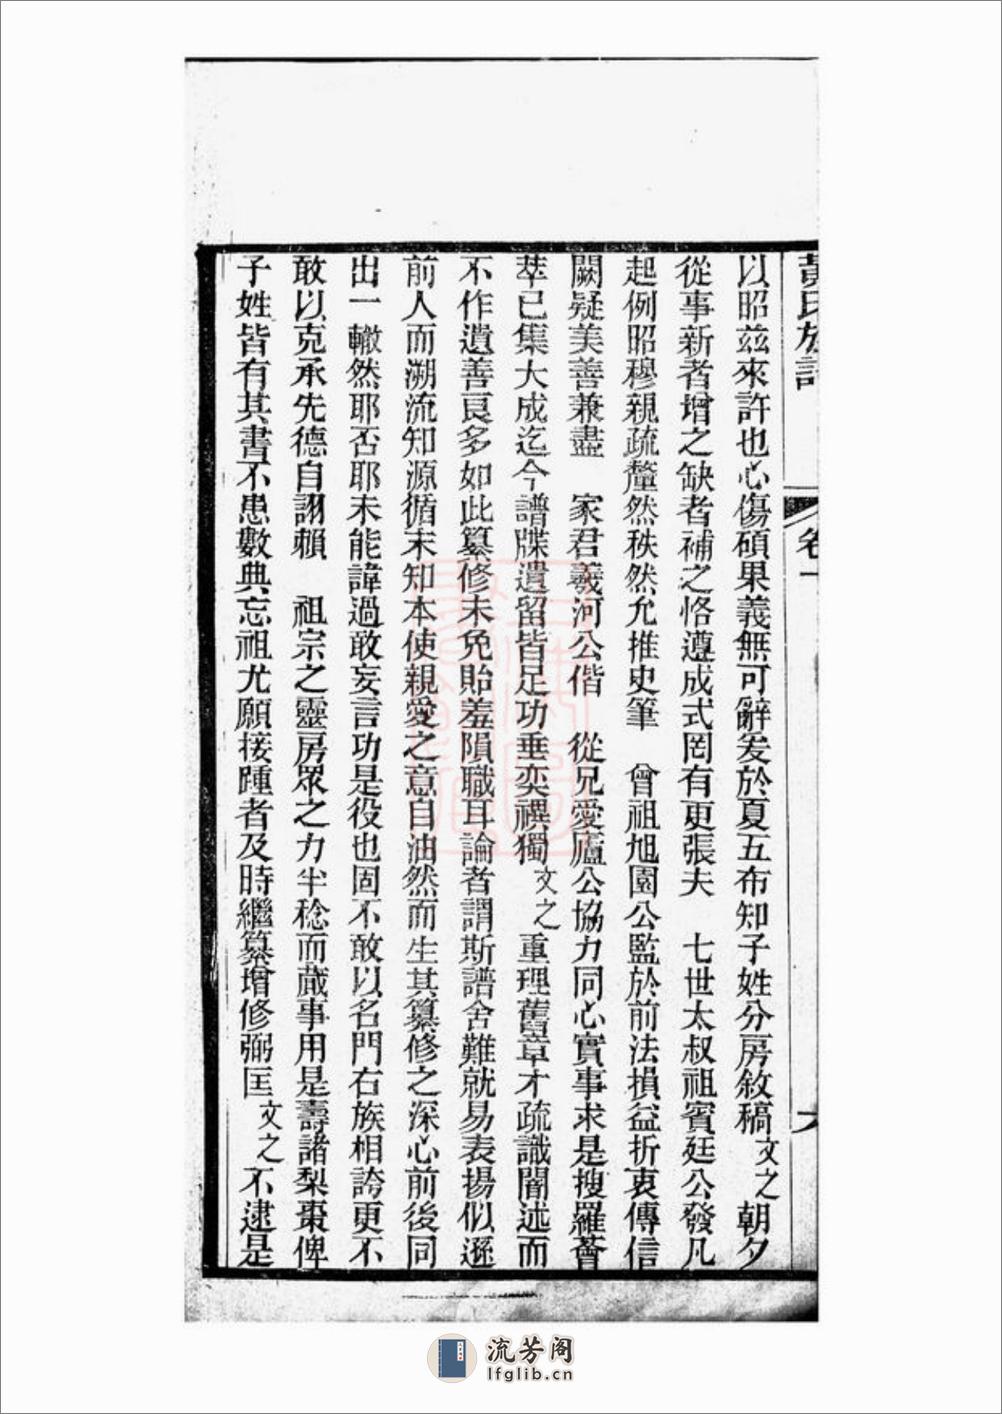 黃氏族譜 卷一
以昭茲來許也心傷碩果義無可辭爰於夏五布知子姓分房敘稿文之朝夕
從事新者增之缺者補之恪遵成式罔有更張夫 七世太叔祖賓廷公發凡
起例昭穆親疏釐然秩然允推史筆 曾祖旭園公監於前法損益折衷傳信
闕疑美善兼盡 家君羲河公偕 從兄愛廬公協力同心實事求是搜羅薈
萃已集大成迄今譜牒遺留皆足功垂奕禩獨文之重理舊章才疏識闇述而
不作遺善良多如此纂修未免貽羞隕職耳論者謂斯譜舍難就易表揚似遜
前人而溯流知源循末知本使親愛之意自油然而生其纂修之深心前後同
出一轍然耶否耶未能諱過敢妄言功是役也固不敢以名門右族相誇更不
敢以克承先德自詡賴 祖宗之靈房眾之力半稔而蕆事用是壽諸梨棗俾
子姓皆有其書不患數典忘祖尤願接踵者及時繼纂增修弼匡文之不逮是
流芳阁
lfglib.cn